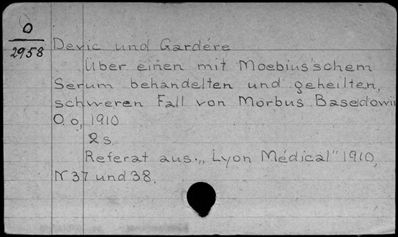 O
2958
Devic und Gardére
Über einen mit Moebius'schem
Serum behandelten und geheilten,
schweren Fall von Morbus Basedowii
O.o, 1910
2 s.
Referat aus: „Lyon Médical" 1910,
N 37 und 38.